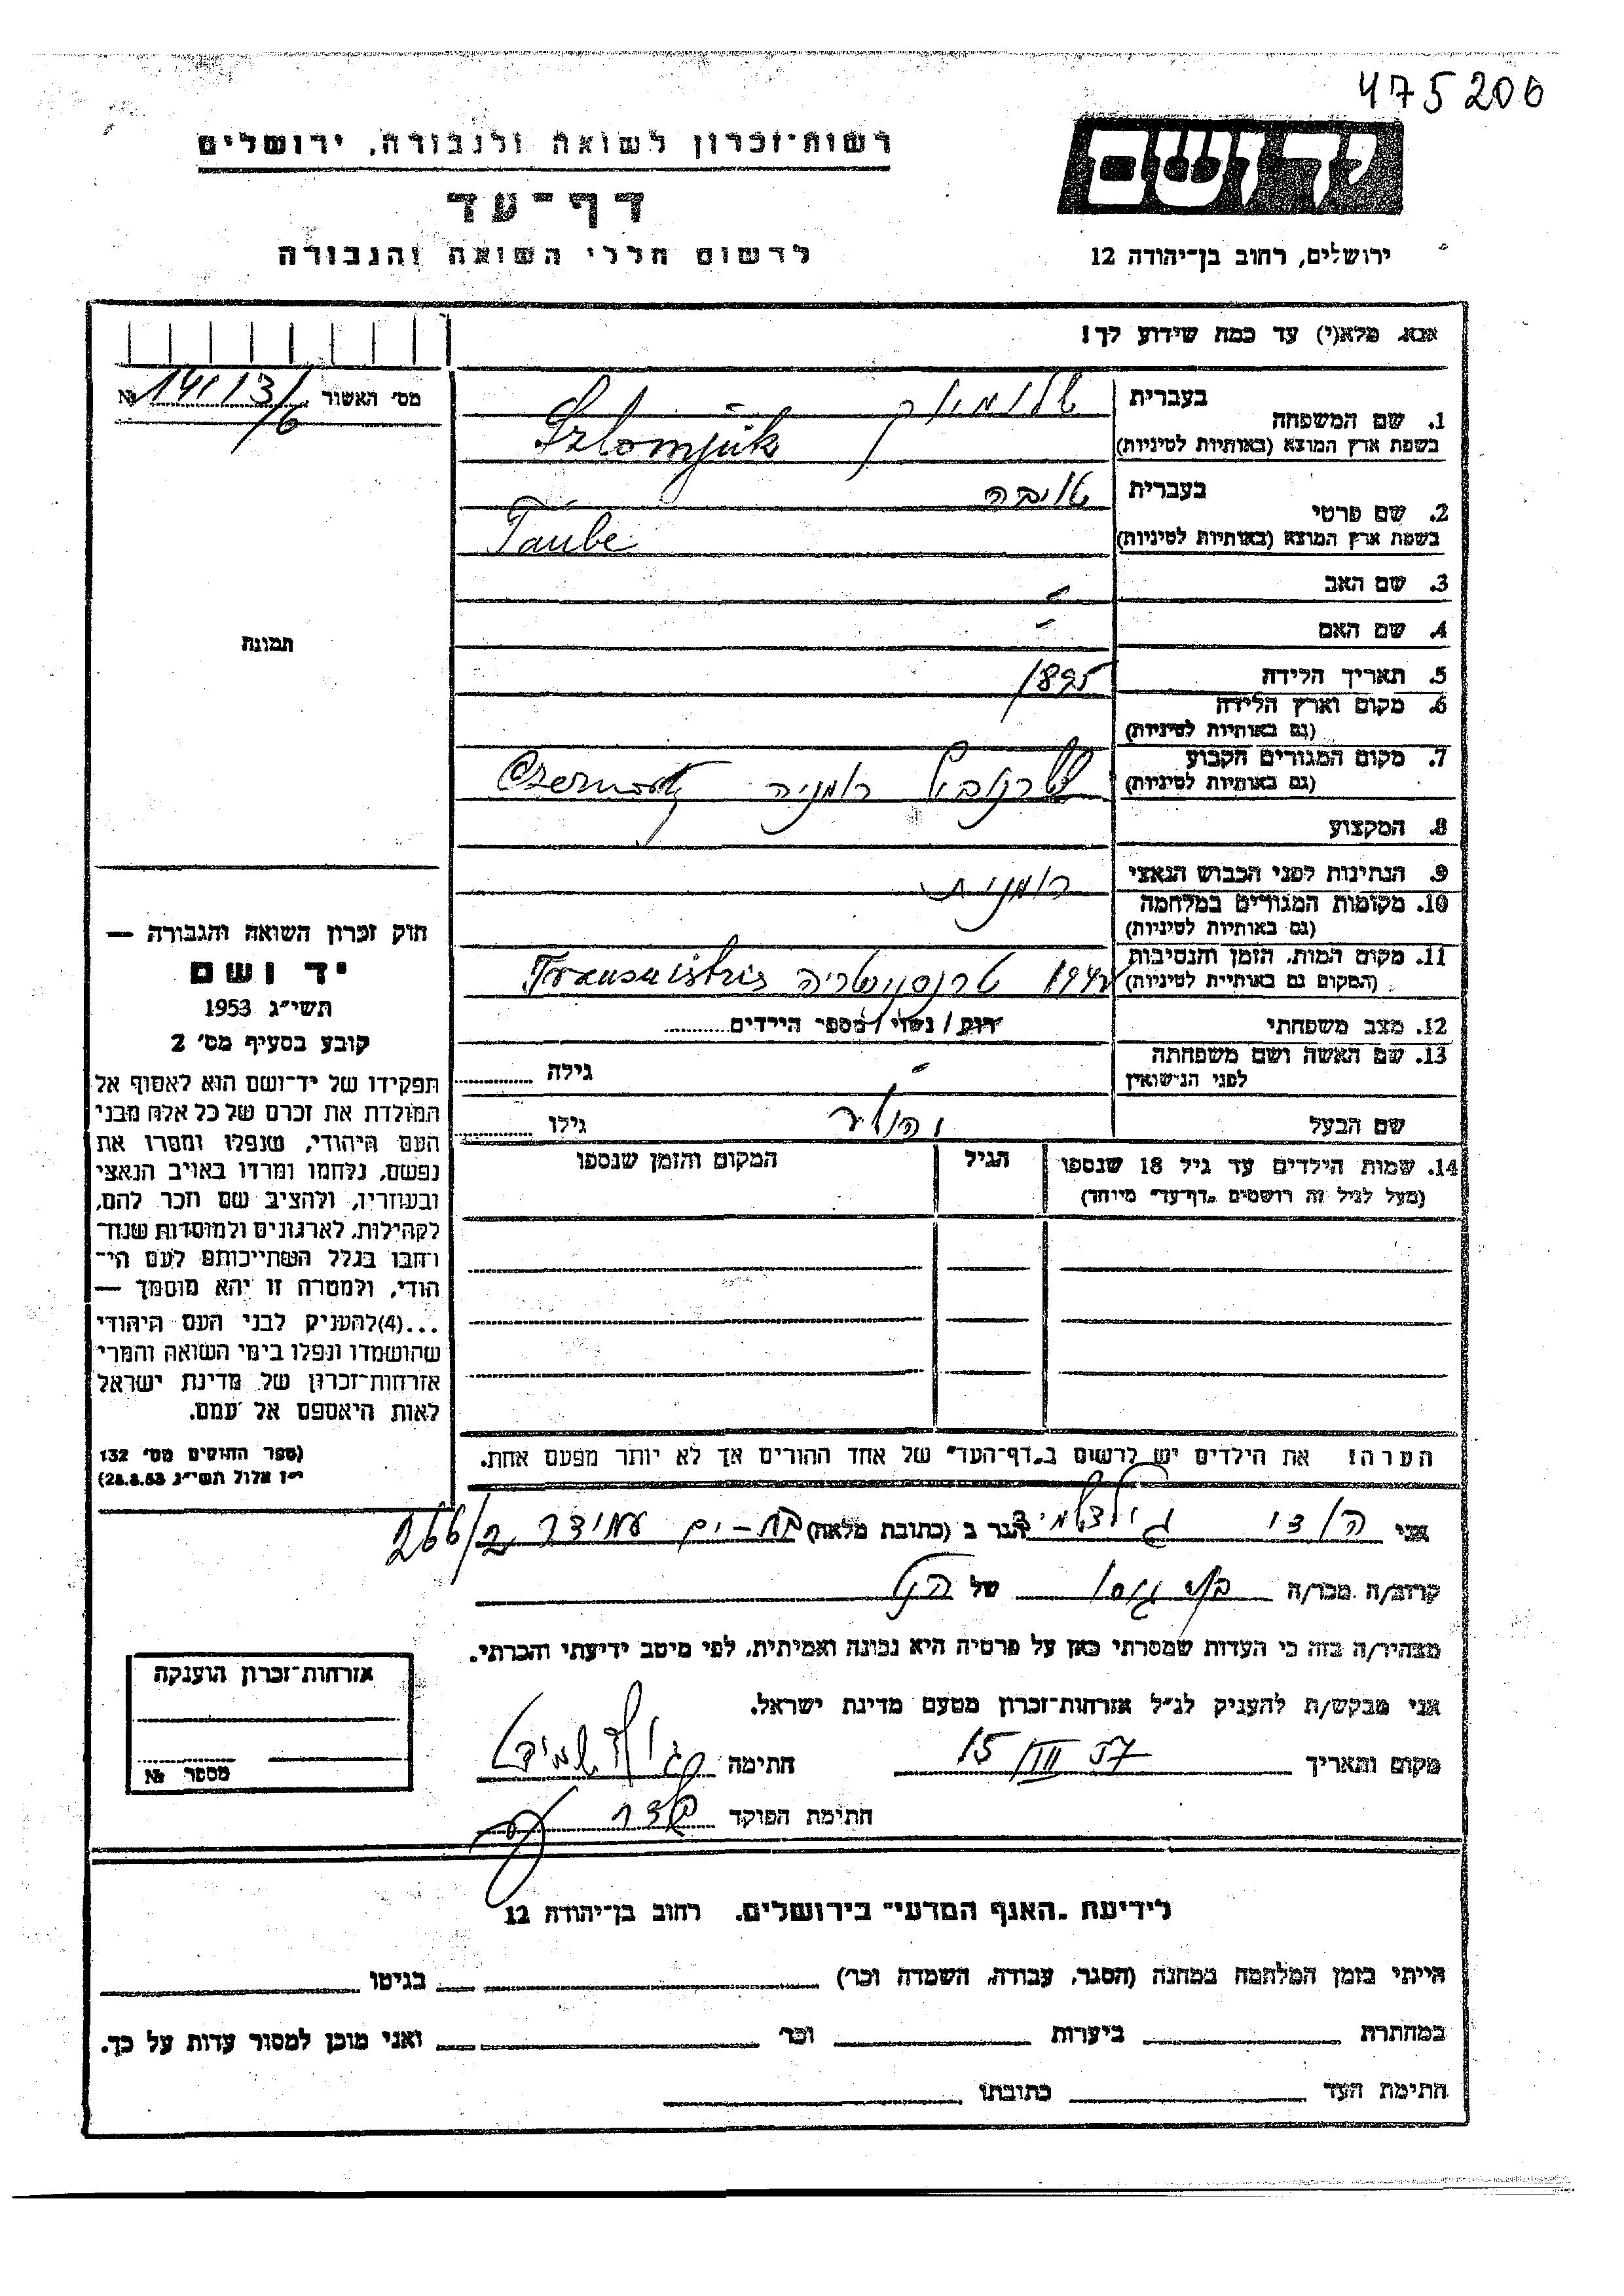 475206
רשות־זכרון לשואה ולגבורה, ירושלים
דף־עד
לרשום חללי השואה והגבורה
יד ושם
ירושלים, רחוב בן־יהודה 12
אנא, מלא(י) עד כמה שידוע לך!
מס׳ האשור № 14113/6
1. שם המשפחה
בעברית
Szlomjuk
בשפת ארץ המוצא (באותיות לטיניות)
2. שם פרטי
בעברית טויבה
Taube
בשפת ארץ המוצא (באותיות לטיניות)
3. שם האב -
4. שם האם -
תמונה
5. תאריך הלידה 1895
6. מקום וארץ הלידה
(גם באותיות לטיניות)
7. מקום המגורים הקבוע רומניה
(גם באותיות לטיניות)
8. המקצוע
9. הנתינות לפני הכבוש הנאצי רומנית
10. מקומות המגורים במלחמה
(גם באותיות לטיניות)
11. מקום המות, הזמן והנסיבות 1942 טרנסניסטריה
(המקום גם באותיות לטיניות)
12. מצב משפחתי רוק / נשוי / מספר הילדים
13. שם האשה ושם משפחתה
לפני הנישואין - גילה
שם הבעל גילו
14. שמות הילדים עד גיל 18 שנספו
(מעל לגיל זה רושמים „דף־עד״ מיוחד)
הגיל
המקום והזמן שנספו
חוק זכרון השואה והגבורה —
יד ושם
תשי״ג 1953
קובע בסעיף מס׳ 2
תפקידו של יד־ושם הוא לאסוף אל
המולדת את זכרם של כל אלה מבני
העם היהודי, שנפלו ומסרו את
נפשם, נלחמו ומרדו באויב הנאצי
ובעוזריו, ולהציב שם וזכר להם,
לקהילות, לארגונים ולמוסדות שנח־
רבו בגלל השתייכותם לעם הי־
הודי, ולמטרה זו יהא מוסמך —
...(4)להעניק לבני העם היהודי
שהושמדו ונפלו בימי השואה והמרי
אזרחות־זכרון של מדינת ישראל
לאות היאספם אל עמם.
(ספר החוקים מס׳ 132
י״ז אלול תשי״ג 28.8.53)
הערה: את הילדים יש לרשום ב„דף־העד״ של אחד ההורים אך לא יותר מפעם אחת.
אני גולדשמיד הגר ב (כתובת מלאה) בת-ים עמידר 266/2
קרוב/ה מכר/ה של הנ״ל
מצהיר/ה בזה כי העדות שמסרתי כאן על פרטיה היא נכונה ואמיתית, לפי מיטב ידיעתי והכרתי.
אני מבקש/ת להעניק לנ״ל אזרחות־זכרון מטעם מדינת ישראל.
מקום ותאריך 15/III 57 חתימה
חתימת הפוקד
אזרחות־זכרון הוענקה
מספר №
לידיעת „האגף המדעי״ בירושלים, רחוב בן־יהודה 12
הייתי בזמן המלחמה במחנה (הסגר, עבודה, השמדה וכר׳) בגיטו
במחתרת ביערות וכר׳ ואני מוכן למסור עדות על כך.
חתימת העד כתובתו